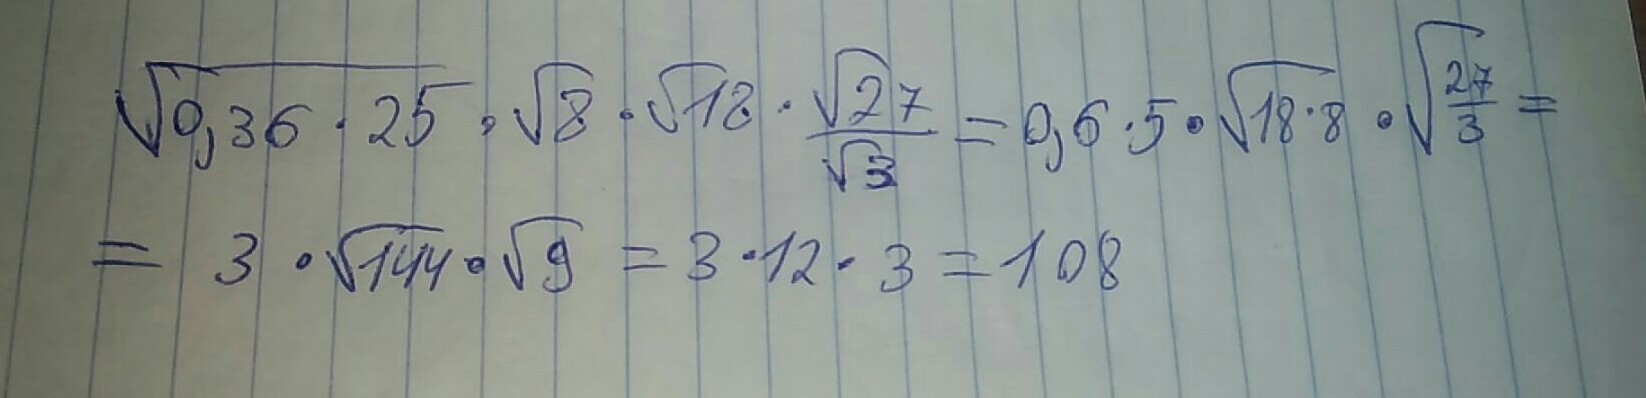 √0,36 · 25 · √8 · √18 · √27/√3 = 0,6 · 5 · √18·8 · √27/3 =
= 3 · √144 · √9 = 3 · 12 · 3 = 108